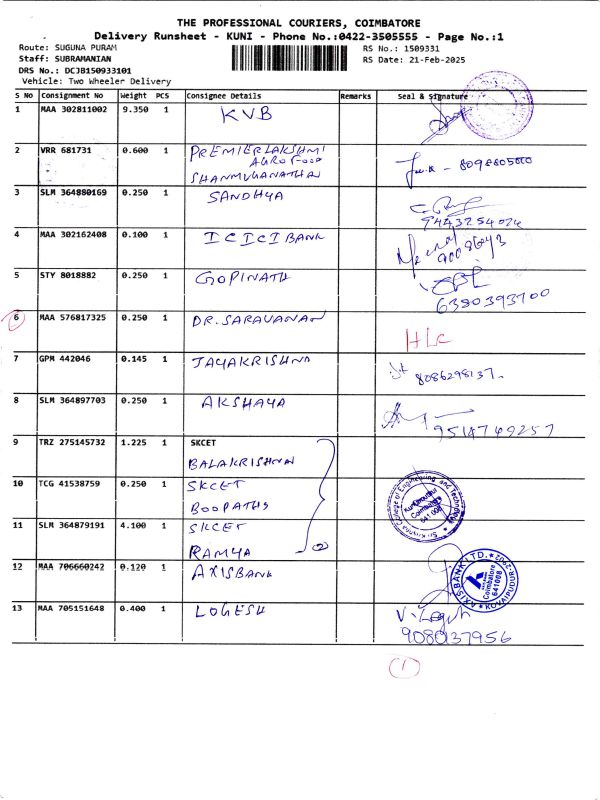 THE PROFESSIONAL COURIERS, COIMBATORE
Delivery Runsheet - KUNI - Phone No.:0422-3505555 - Page No.:1
Route: SUGUNA PURAM
RS No.: 1509331
Staff: SUBRAMANIAN
RS Date: 21-Feb-2025
DRS No.: DCJB150933101
Vehicle: Two Wheeler Delivery
S No Consignment No Weight PCS Consignee Details Remarks Seal & Signature
1 MAA 302811002 9.350 1 KVB
2 VRR 681731 0.600 1 PREMIER LAKSHMI
AGRO FOOD
SHANMUGANATHAN
8098805000
3 SLM 364880169 0.250 1 SANDHYA
9443254024
4 MAA 302162408 0.100 1 ICICI BANK
5 STY 8018882 0.250 1 GOPINATH
6380393700
6 MAA 576817325 0.250 1 DR. SARAVANAN
HLC
7 GPM 442046 0.145 1 JAYAKRISHNA
8086298137.
8 SLM 364897703 0.250 1 AKSHAYA
9514749257
9 TRZ 275145732 1.225 1 SKCET
BALAKRISHNAN
10 TCG 41538759 0.250 1 SKCET
BOOPATHY
Sri Krishna College of Engineering and Technology
Kuniamuthur
Coimbatore
641 008
11 SLM 364879191 4.100 1 SKCET
RAMYA
12 MAA 706660242 0.120 1 AXISBANK
AXIS BANK LTD.
Coimbatore
641008
KOVAIPUDUR-2902
13 MAA 705151648 0.400 1 LOGESH
V. Logesh
9080137956
1